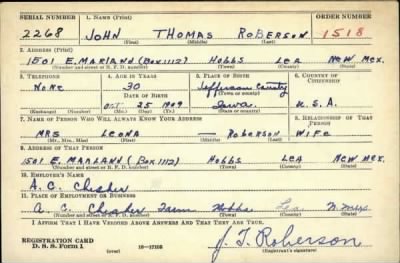 SERIAL NUMBER 1. NAME (Print) ORDER NUMBER
2268 JOHN THOMAS ROBERSON 1518
(First) (Middle) (Last)
2. ADDRESS (Print)
1501 E. MARLAND (BOX 1112) HOBBS LEA NEW MEX.
(Number and street or R. F. D. number) (Town) (County) (State)
3. TELEPHONE 4. AGE IN YEARS 5. PLACE OF BIRTH 6. COUNTRY OF CITIZENSHIP
NONE 30 Jefferson County U.S.A.
DATE OF BIRTH (Town or county)
OCT 25 1909 Iowa
(Exchange) (Number) (Mo.) (Day) (Yr.) (State or country)
7. NAME OF PERSON WHO WILL ALWAYS KNOW YOUR ADDRESS 8. RELATIONSHIP OF THAT PERSON
MRS LEONA — ROBERSON WIFE
(Mr., Mrs., Miss) (First) (Middle) (Last)
9. ADDRESS OF THAT PERSON
1501 E. MARLAND (BOX 1112) HOBBS LEA NEW MEX.
(Number and street or R. F. D. number) (Town) (County) (State)
10. EMPLOYER'S NAME
A. C.
11. PLACE OF EMPLOYMENT OR BUSINESS
A. C. Farm Hobbs Lea N. Mex
(Number and street or R. F. D. number) (Town) (County) (State)
I AFFIRM THAT I HAVE VERIFIED ABOVE ANSWERS AND THAT THEY ARE TRUE.
REGISTRATION CARD
D. S. S. FORM 1 (over) 16-17105 J. T. Roberson
(Registrant's signature)